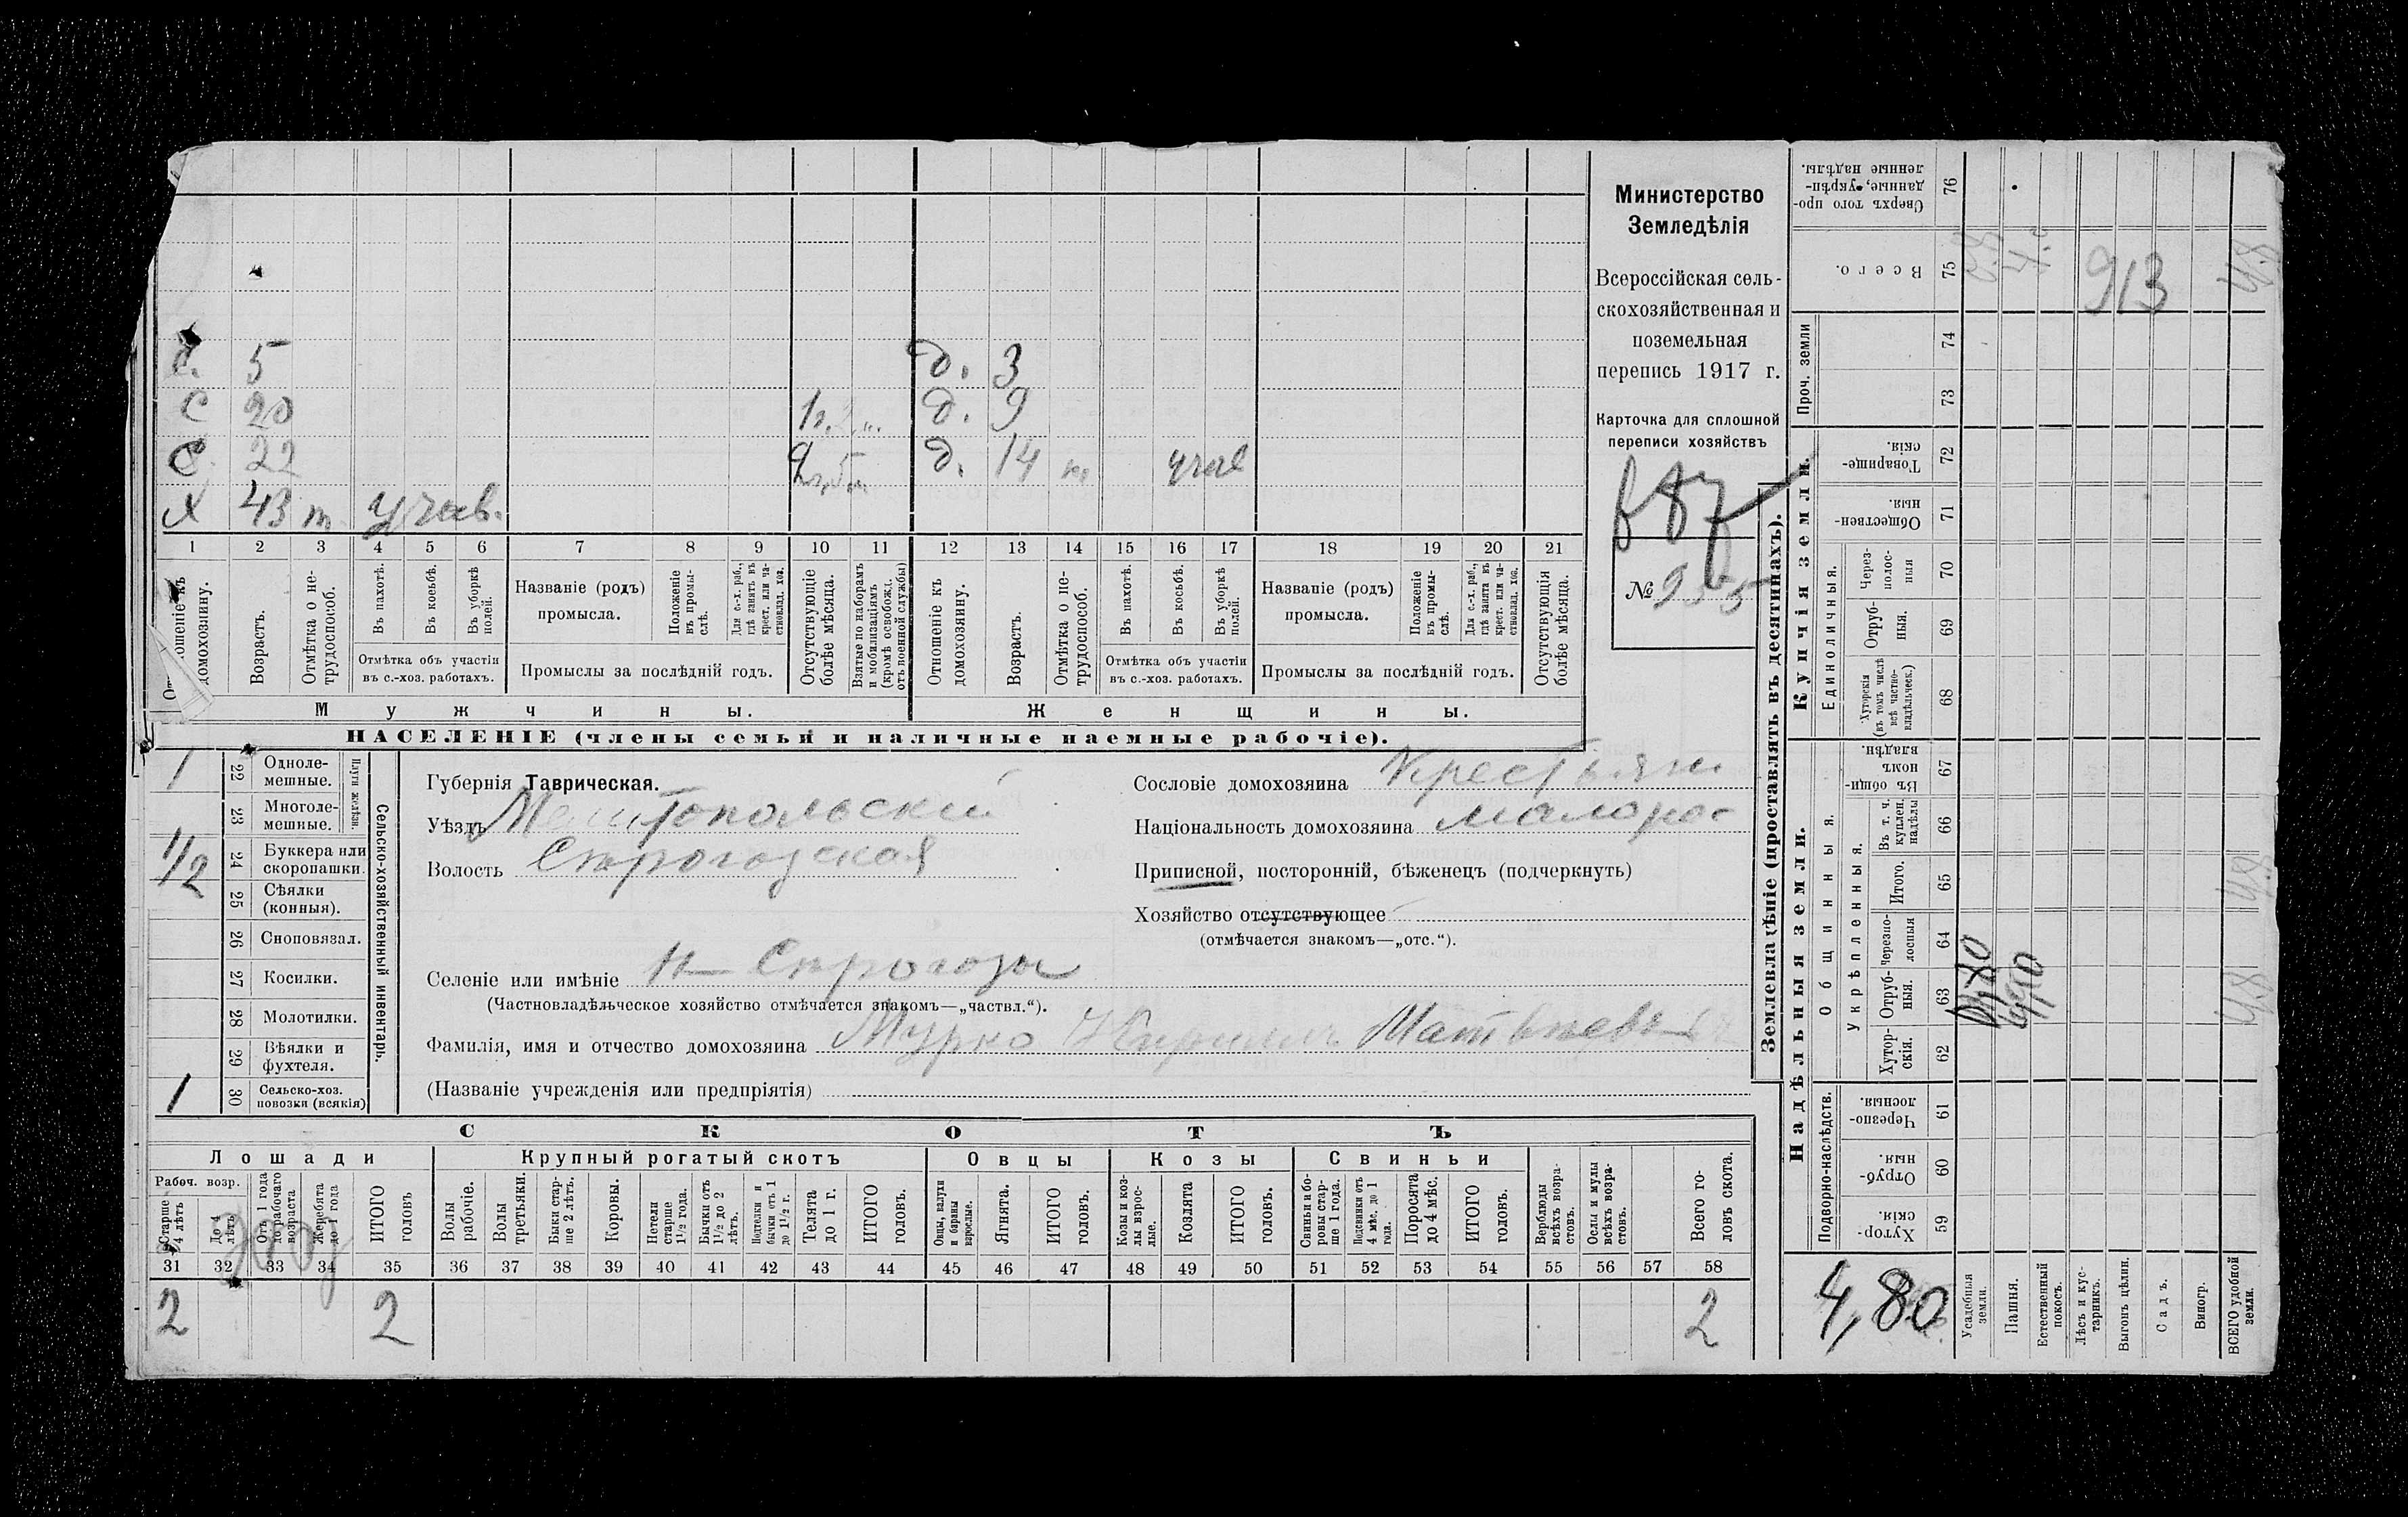 Министерство
Земледѣлія
Всероссійская сель-
скохозяйственная и
поземельная
перепись 1917 г.
Карточка для сплошной
переписи хозяйствъ
№ 955
5 д. 3
С 20 д. 9
С. 22 д. 14 учав
Х 43 т учав.
1 2 3 4 5 6 7 8 9 10 11 12 13 14 15 16 17 18 19 20 21
домохозяину.
Возрастъ.
Отмѣтка о не-
трудоспособ.
Въ пахотѣ.
Въ косьбѣ.
Въ уборкѣ
полей.
Отмѣтка объ участіи
въ с.-хоз. работахъ.
Названіе (родъ)
промысла.
Положеніе
въ промы-
слѣ.
Для с.-х. раб.,
гдѣ занятъ въ
крест. или ча-
стновлад. хоз.
Промыслы за послѣдній годъ.
Отсутствующіе
болѣе мѣсяца.
Взятые по наборамъ
и мобилизаціямъ
(кромѣ освобожд.
отъ военной службы)
Отношеніе къ
домохозяину.
Возрастъ.
Отмѣтка о не-
трудоспособ.
Въ пахотѣ.
Въ косьбѣ.
Въ уборкѣ
полей.
Отмѣтка объ участіи
въ с.-хоз. работахъ.
Названіе (родъ)
промысла.
Положеніе
въ промы-
слѣ.
Для с.-х. раб.,
гдѣ занята въ
крест. или ча-
стновлад. хоз.
Промыслы за послѣдній годъ.
Отсутствующія
болѣе мѣсяца.
Мужчины.
Женщины.
НАСЕЛЕНІЕ (члены семьи и наличные наемные рабочіе).
Сельско-хозяйственный инвентарь.
Плуги желѣзн.
1 22 Одноле-
мешные.
23 Многоле-
мешные.
1/2 24 Буккера или
скоропашки.
25 Сѣялки
(конныя).
26 Сноповязал.
27 Косилки.
28 Молотилки.
29 Вѣялки и
фухтеля.
1 30 Сельско-хоз.
повозки (всякія)
Губернія Таврическая.
Уѣздъ Мелитопольскій
Волость Сѣрогозская
Селеніе или имѣніе Н Сѣрогозы
(Частновладѣльческое хозяйство отмѣчается знакомъ—„частвл.“).
Фамилія, имя и отчество домохозяина Мурко Матвѣевъ
(Названіе учрежденія или предпріятія)
Сословіе домохозяина Крестьян
Національность домохозяина малорос
Приписной, посторонній, бѣженецъ (подчеркнуть)
Хозяйство отсутствующее
(отмѣчается знакомъ—„отс.“).
СКОТЪ
Лошади
Рабоч. возр.
Старше
4 лѣтъ
До 4
лѣтъ
Отъ 1 года
до рабочаго
возраста
Жеребята
до 1 года
ИТОГО
головъ
Крупный рогатый скотъ
Волы
рабочіе.
Волы
третьяки.
Быки стар-
ше 2 лѣтъ.
Коровы.
Нетели
старше
1½ года.
Бычки отъ
1½ до 2
лѣтъ.
Нетелки и
бычки отъ 1
до 1½ г.
Телята
до 1 г.
ИТОГО
головъ.
Овцы
Овцы, валухи
и бараны
взрослые.
Ягнята.
ИТОГО
головъ.
Козы
Козы и коз-
лы взрос-
лые.
Козлята
ИТОГО
головъ.
Свиньи
Свиньи и бо-
ровы стар-
ше 1 года.
Подсвинки отъ
4 мѣс. до 1
года.
Поросята
до 4 мѣс.
ИТОГО
головъ.
Верблюды
всѣхъ возра-
стовъ.
Ослы и мулы
всѣхъ возра-
стовъ.
Всего го-
ловъ скота.
31 32 33 34 35 36 37 38 39 40 41 42 43 44 45 46 47 48 49 50 51 52 53 54 55 56 57 58
2 2 2
Землевладѣніе (проставлять въ десятинахъ).
Купчія земли.
Надѣльныя земли.
Сверхъ того про-
данные, укрѣп-
ленные надѣлы.
76
Всего.
75
913
Проч. земли
74
73
Товарище-
скія.
72
Обществен-
ныя.
71
Единоличныя.
Через-
полос-
ныя
70
Отруб-
ныя.
69
Хуторскія
(въ томъ числѣ
всѣ частно-
владѣльческ.)
68
Общинныя.
Въ общи-
номъ
владѣн.
67
Укрѣпленныя.
Въ т. ч.
куплен.
надѣлы
66
Итого.
65
Черезпо-
лосныя
64
Отруб-
ныя.
63
Хутор-
скія.
62
Подворно-наслѣдств.
Черезпо-
лосныя.
61
Отруб-
ныя.
60
Хутор-
скія.
59
4,80
Усадебныя
земли.
Пашня.
Естественный
покосъ.
Лѣсъ и кус-
тарникъ.
Выгонъ цѣлин.
Садъ.
Виногр.
ВСЕГО удобной
земли.